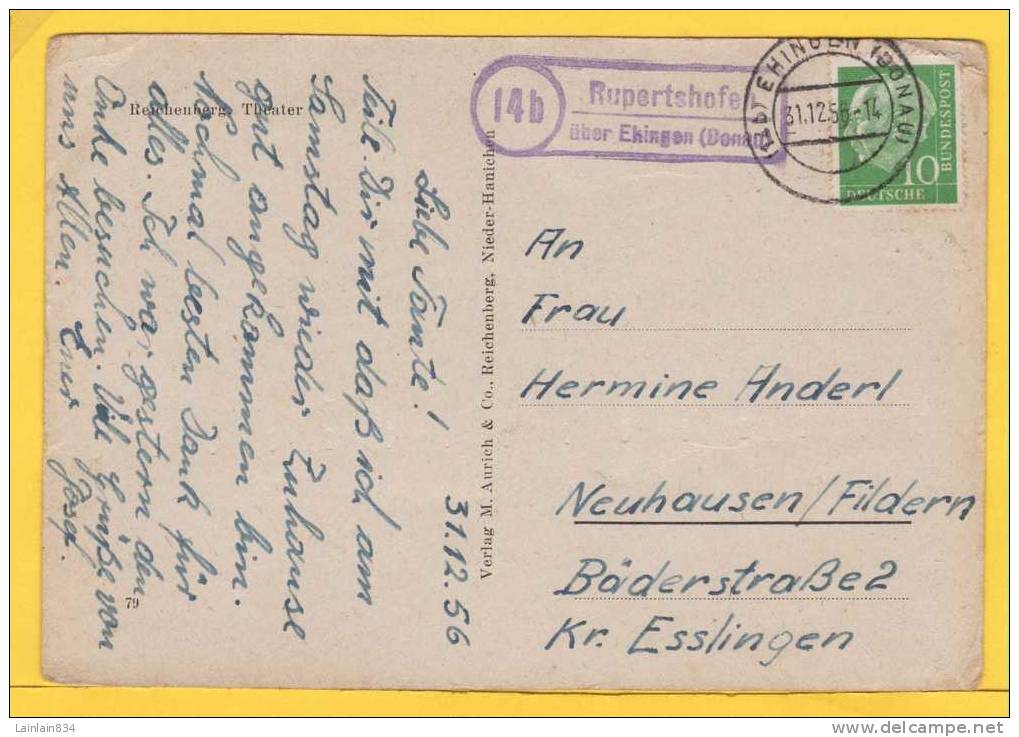 Reichenberg, Theater
79
Verlag M. Aurich & Co., Reichenberg, Nieder-Hanichen
14b
Rupertshofe
über Ehingen (Donau)
EHINGEN (DONAU)
31.12.56-14
10
DEUTSCHE
BUNDESPOST
31.12.56
Liebe Tante!
Teile Dir mit daß ich am
Samstag wieder Zuhause
gut angekommen bin.
Nochmal besten Dank für
alles. Ich war gestern den
besuchen. Viele Grüße von
uns Allen. Euer Josef.
An
Frau
Hermine Anderl
Neuhausen/Fildern
Bäderstraße 2
Kr. Esslingen
Lainlain834
www.delcampe.net